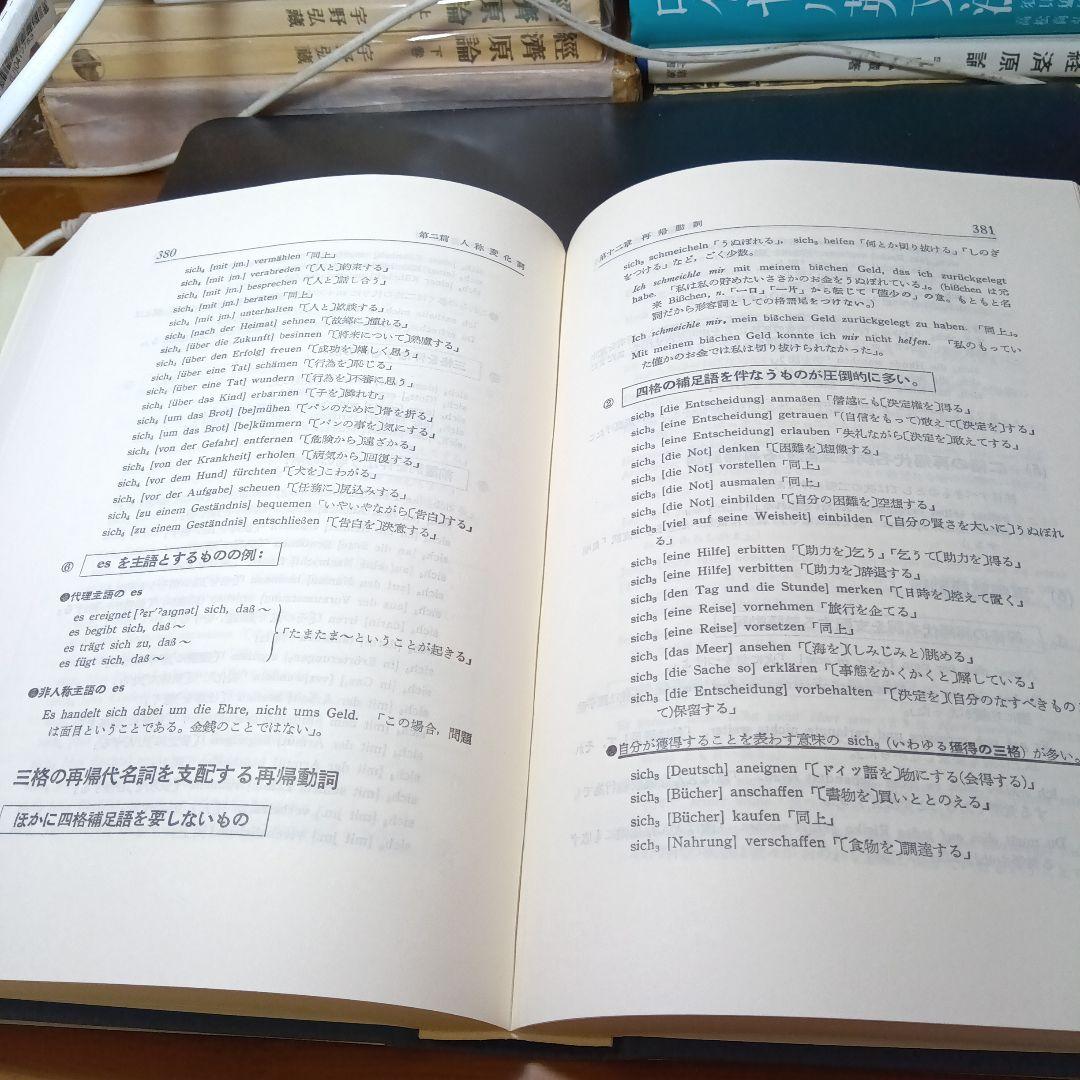 經濟原論 上
宇野弘蔵
經濟原論 下卷
宇野弘蔵
経済原論
380
第二篇 人称変化詞
sich₄ [mit jm.] vermählen「同上」
sich₄ [mit jm.] verabreden「〔人と〕約束する」
sich₄ [mit jm.] besprechen「〔人と〕話し合う」
sich₄ [mit jm.] beraten「同上」
sich₄ [mit jm.] unterhalten「〔人と〕歓談する」
sich₄ [nach der Heimat] sehnen「〔故郷に〕憧れる」
sich₄ [über die Zukunft] besinnen「〔将来について〕熟慮する」
sich₄ [über den Erfolg] freuen「〔成功を〕嬉しく思う」
sich₄ [über eine Tat] schämen「〔行為を〕恥じる」
sich₄ [über eine Tat] wundern「〔行為を〕不審に思う」
sich₄ [über das Kind] erbarmen「〔子を〕憐れむ」
sich₄ [um das Brot] [be]mühen「〔パンのために〕骨を折る」
sich₄ [um das Brot] [be]kümmern「〔パンの事を〕気にする」
sich₄ [von der Gefahr] entfernen「〔危険から〕遠ざかる」
sich₄ [von der Krankheit] erholen「〔病気から〕回復する」
sich₄ [vor dem Hund] fürchten「〔犬を〕こわがる」
sich₄ [vor der Aufgabe] scheuen「〔任務に〕尻込みする」
sich₄ [zu einem Geständnis] bequemen「いやいやながら〔告白〕する」
sich₄ [zu einem Geständnis] entschließen「〔告白を〕決意する」
⑥ es を主語とするものの例:
❶代理主語の es
es ereignet [ˀɛrˈˀaɪgnət] sich, daß〜
es begibt sich, daß〜
es trägt sich zu, daß〜
es fügt sich, daß〜
「たまたま〜ということが起きる」
❷非人称主語の es
Es handelt sich dabei um die Ehre, nicht ums Geld. 「この場合, 問題
は面目ということである。金銭のことではない」。
三格の再帰代名詞を支配する再帰動詞
ほかに四格補足語を要しないもの
第十二章 再帰動詞
381
sich₃ schmeicheln「うぬぼれる」, sich₃ helfen「何とか切り抜ける」「しのぎ
をつける」など, ごく少数。
Ich schmeichle mir mit meinem bißchen Geld, das ich zurückgelegt
habe. 「私は私の貯めたいささかのお金をうぬぼれている」。(bißchen は元
来 Bißchen, n.「一口」「一片」から転じて「僅少の」の意。もともと名
詞だから形容詞としての格語尾をつけない。)
Ich schmeichle mir, mein bißchen Geld zurückgelegt zu haben. 「同上」。
Mit meinem bißchen Geld konnte ich mir nicht helfen. 「私のもってい
た僅かのお金では私は切り抜けられなかった」。
② 四格の補足語を伴なうものが圧倒的に多い。
sich₃ [die Entscheidung] anmaßen「僭越にも〔決定権を〕得る」
sich₃ [eine Entscheidung] getrauen「(自信をもって)敢えて〔決定を〕する」
sich₃ [eine Entscheidung] erlauben「失礼ながら〔決定を〕敢えてする」
sich₃ [die Not] denken「〔困難を〕想像する」
sich₃ [die Not] vorstellen「同上」
sich₃ [die Not] ausmalen「同上」
sich₃ [die Not] einbilden「〔自分の困難を〕空想する」
sich₃ [viel auf seine Weisheit] einbilden「〔自分の賢さを大いに〕うぬぼれ
る」
sich₃ [eine Hilfe] erbitten「〔助力を〕乞う」「乞うて〔助力を〕得る」
sich₃ [eine Hilfe] verbitten「〔助力を〕辞退する」
sich₃ [den Tag und die Stunde] merken「〔日時を〕控えて置く」
sich₃ [eine Reise] vornehmen「旅行を企てる」
sich₃ [eine Reise] vorsetzen「同上」
sich₃ [das Meer] ansehen「〔海を〕(しみじみと)眺める」
sich₃ [die Sache so] erklären「〔事態をかくかくと〕解している」
sich₃ [die Entscheidung] vorbehalten「〔決定を〕(自分のなすべきもの
て)保留する」
●自分が獲得することを表わす意味の sich₃ (いわゆる獲得の三格) が多い。
sich₃ [Deutsch] aneignen「〔ドイツ語を〕物にする(会得する)」
sich₃ [Bücher] anschaffen「〔書物を〕買いととのえる」
sich₃ [Bücher] kaufen「同上」
sich₃ [Nahrung] verschaffen「〔食物を〕調達する」